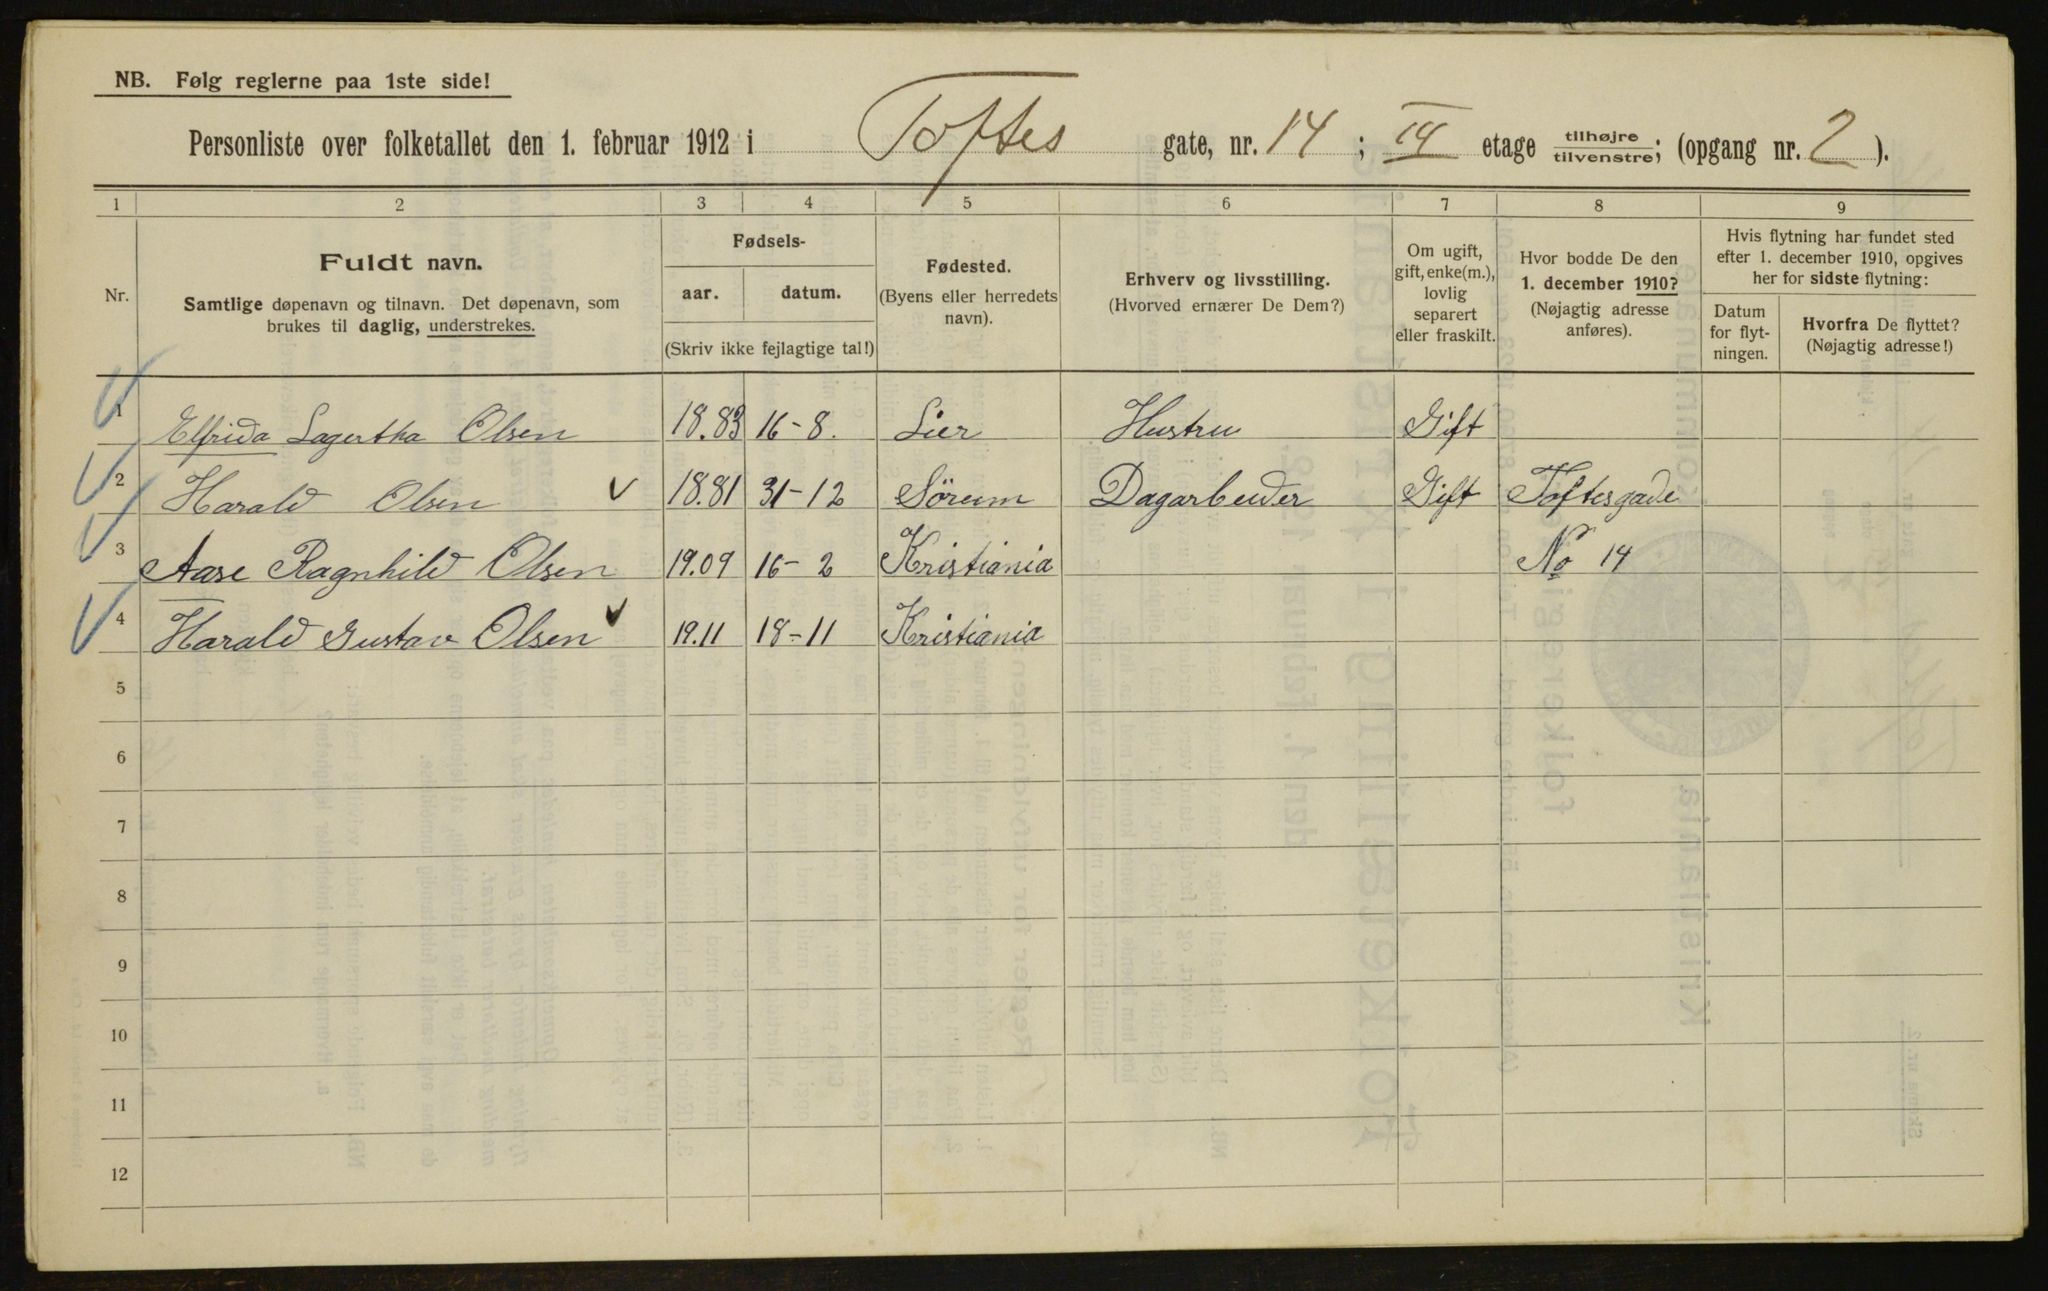 NB. Følg reglerne paa 1ste side!
Personliste over folketallet den 1. februar 1912 i Toftes gate, nr. 14 ; IV etage tilhøjre/tilvenstre; (opgang nr. 2 ).
1 2 3 4 5 6 7 8 9
Nr.
Fuldt navn.
Samtlige døpenavn og tilnavn. Det døpenavn, som
brukes til daglig, understrekes.
Fødsels-
aar. datum.
(Skriv ikke fejlagtige tal!)
Fødested.
(Byens eller herredets
navn).
Erhverv og livsstilling.
(Hvorved ernærer De Dem?)
Om ugift,
gift, enke(m.),
lovlig
separert
eller fraskilt.
Hvor bodde De den
1. december 1910?
(Nøjagtig adresse
anføres).
Hvis flytning har fundet sted
efter 1. december 1910, opgives
her for sidste flytning:
Datum
for flyt-
ningen.
Hvorfra De flyttet?
(Nøjagtig adresse!)
1 Elfrida Lagertha Olsen 18.83 16-8. Lier Hustru Gift
2 Harald Olsen 18.81 31-12 Sörum Dagarbeider Gift Toftesgade
3 Aase Ragnhild Olsen 19.09 16-2 Kristiania No 14
4 Harald Gustav Olsen 19.11 18-11 Kristiania
5
6
7
8
9
10
11
12